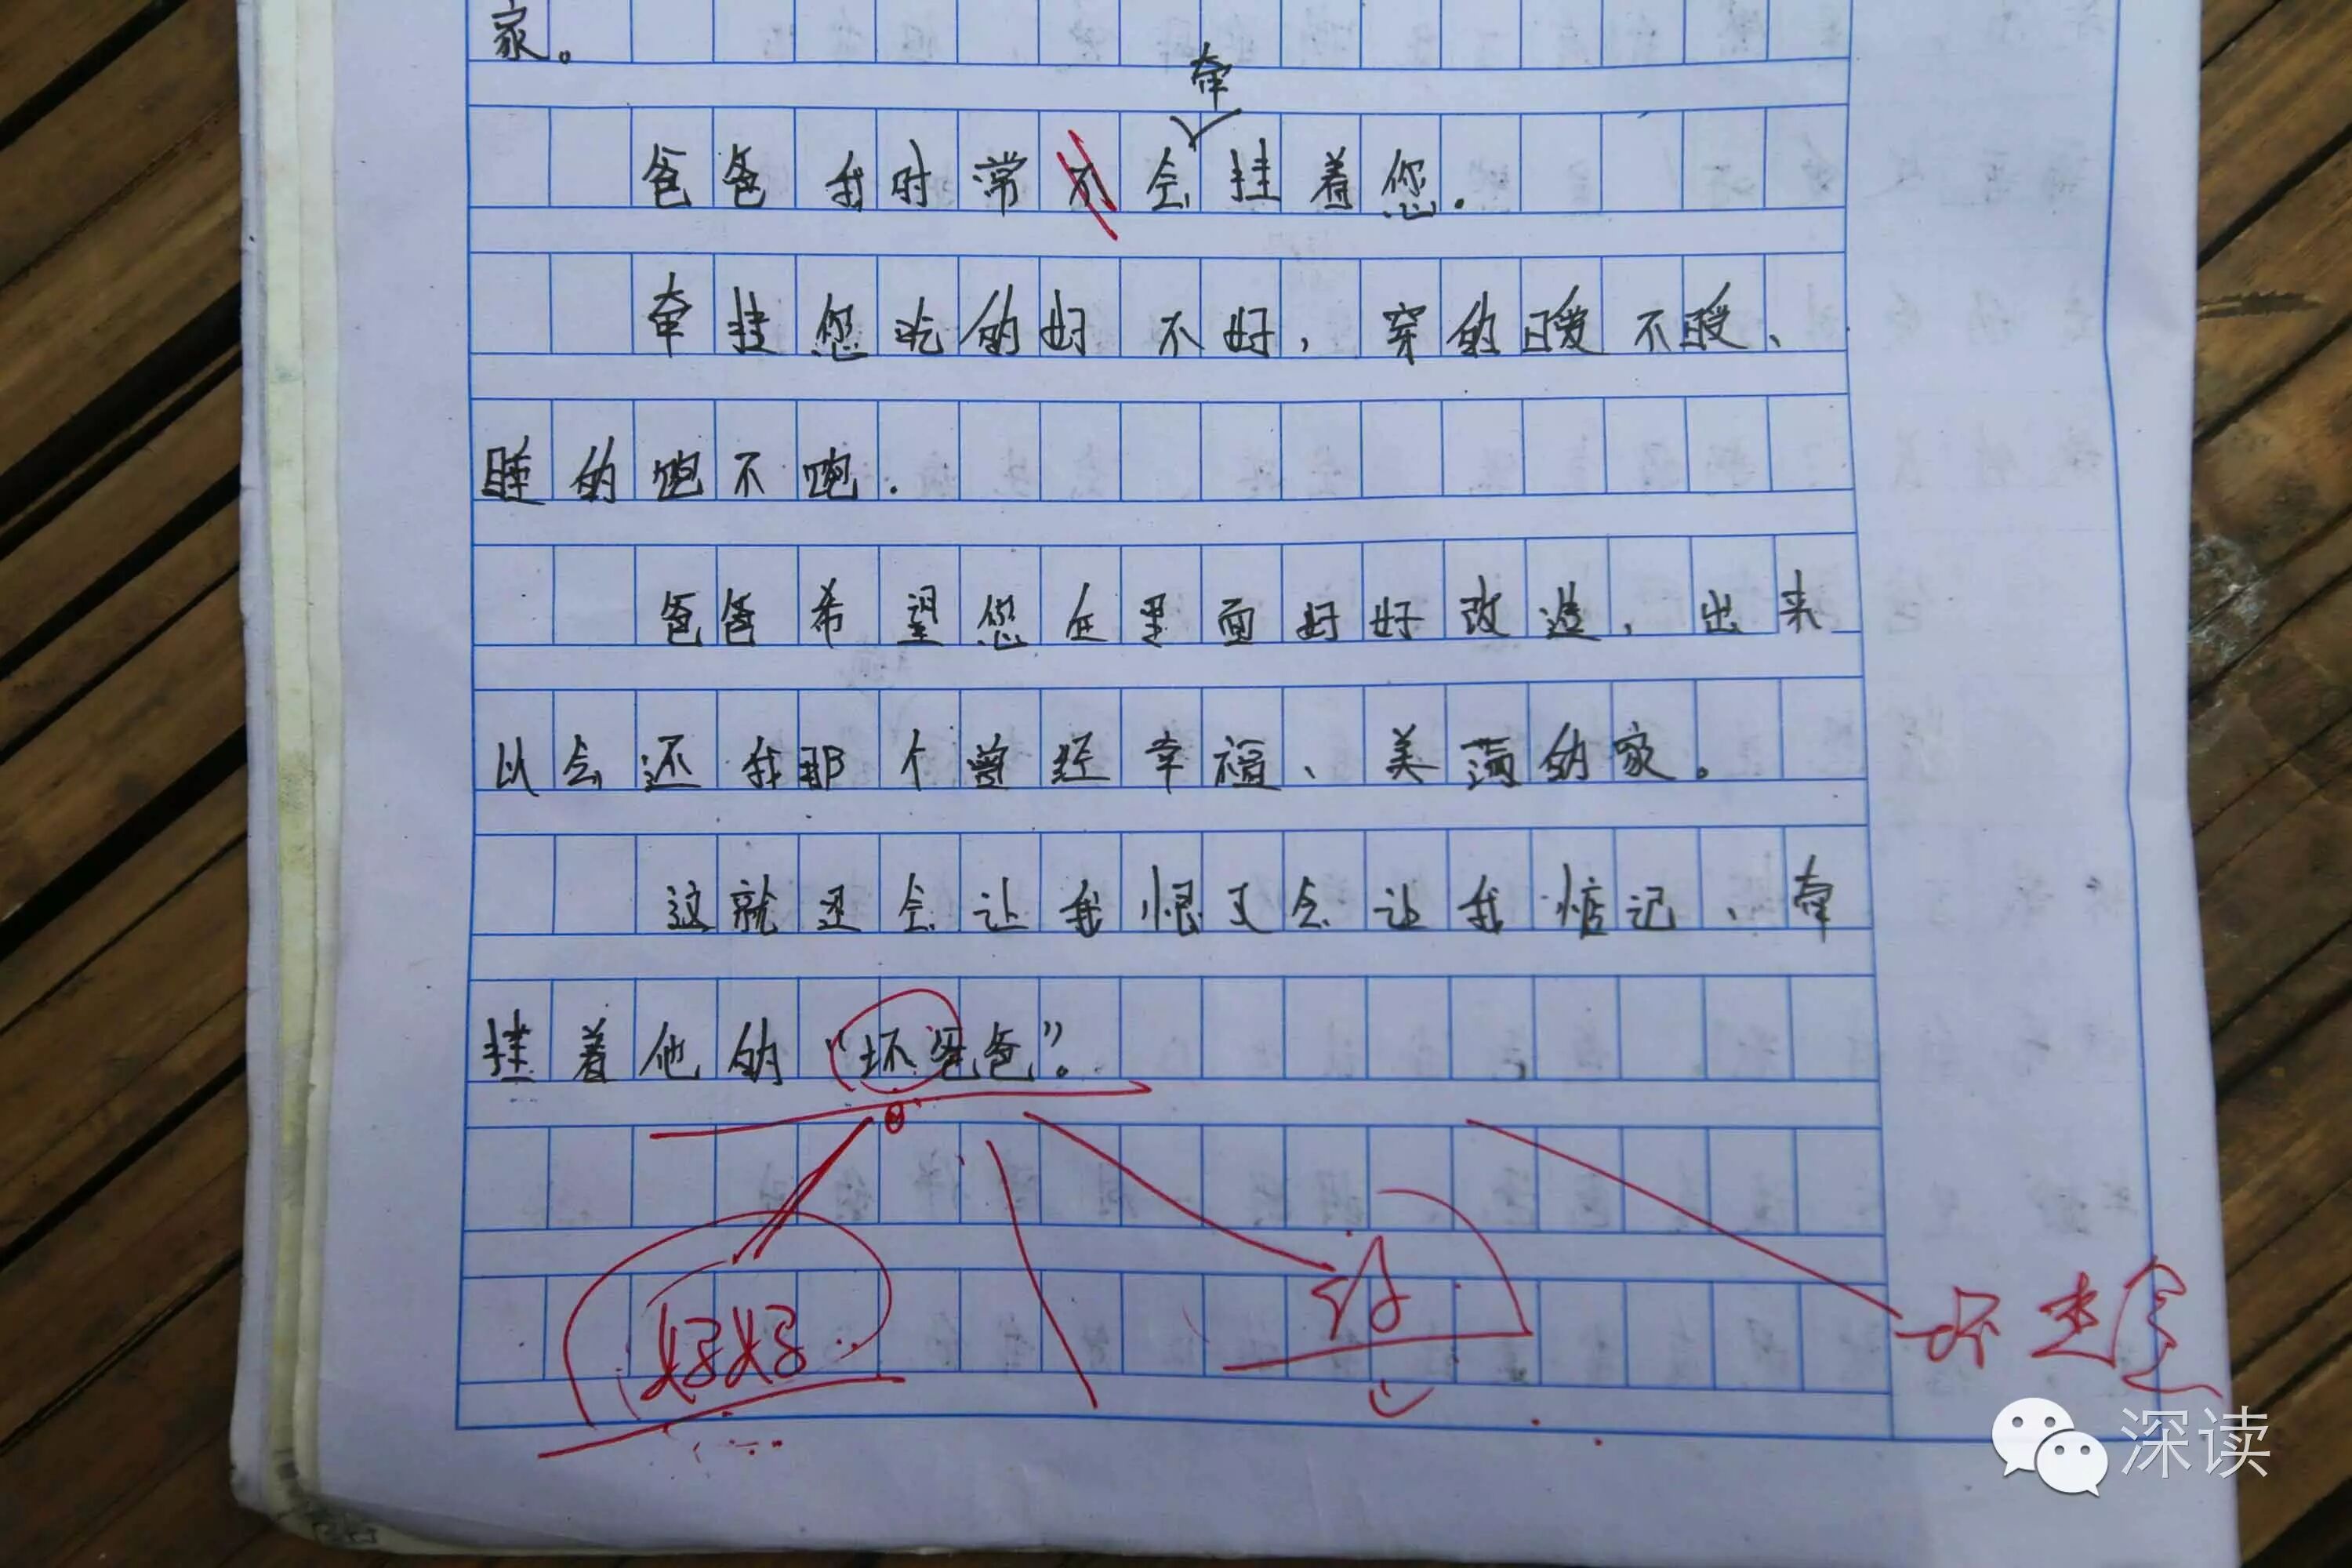 家。
牵
爸爸我时常不会挂着您.
牵挂您吃的好不好,穿的暖不暖、
睡的饱不饱.
爸爸希望您在里面好好改造,出来
以会还我那个曾经幸福、美满的家。
这就还会让我恨又会让我惦记、牵
挂着他的“坏爸爸”。
好好
坏
深读